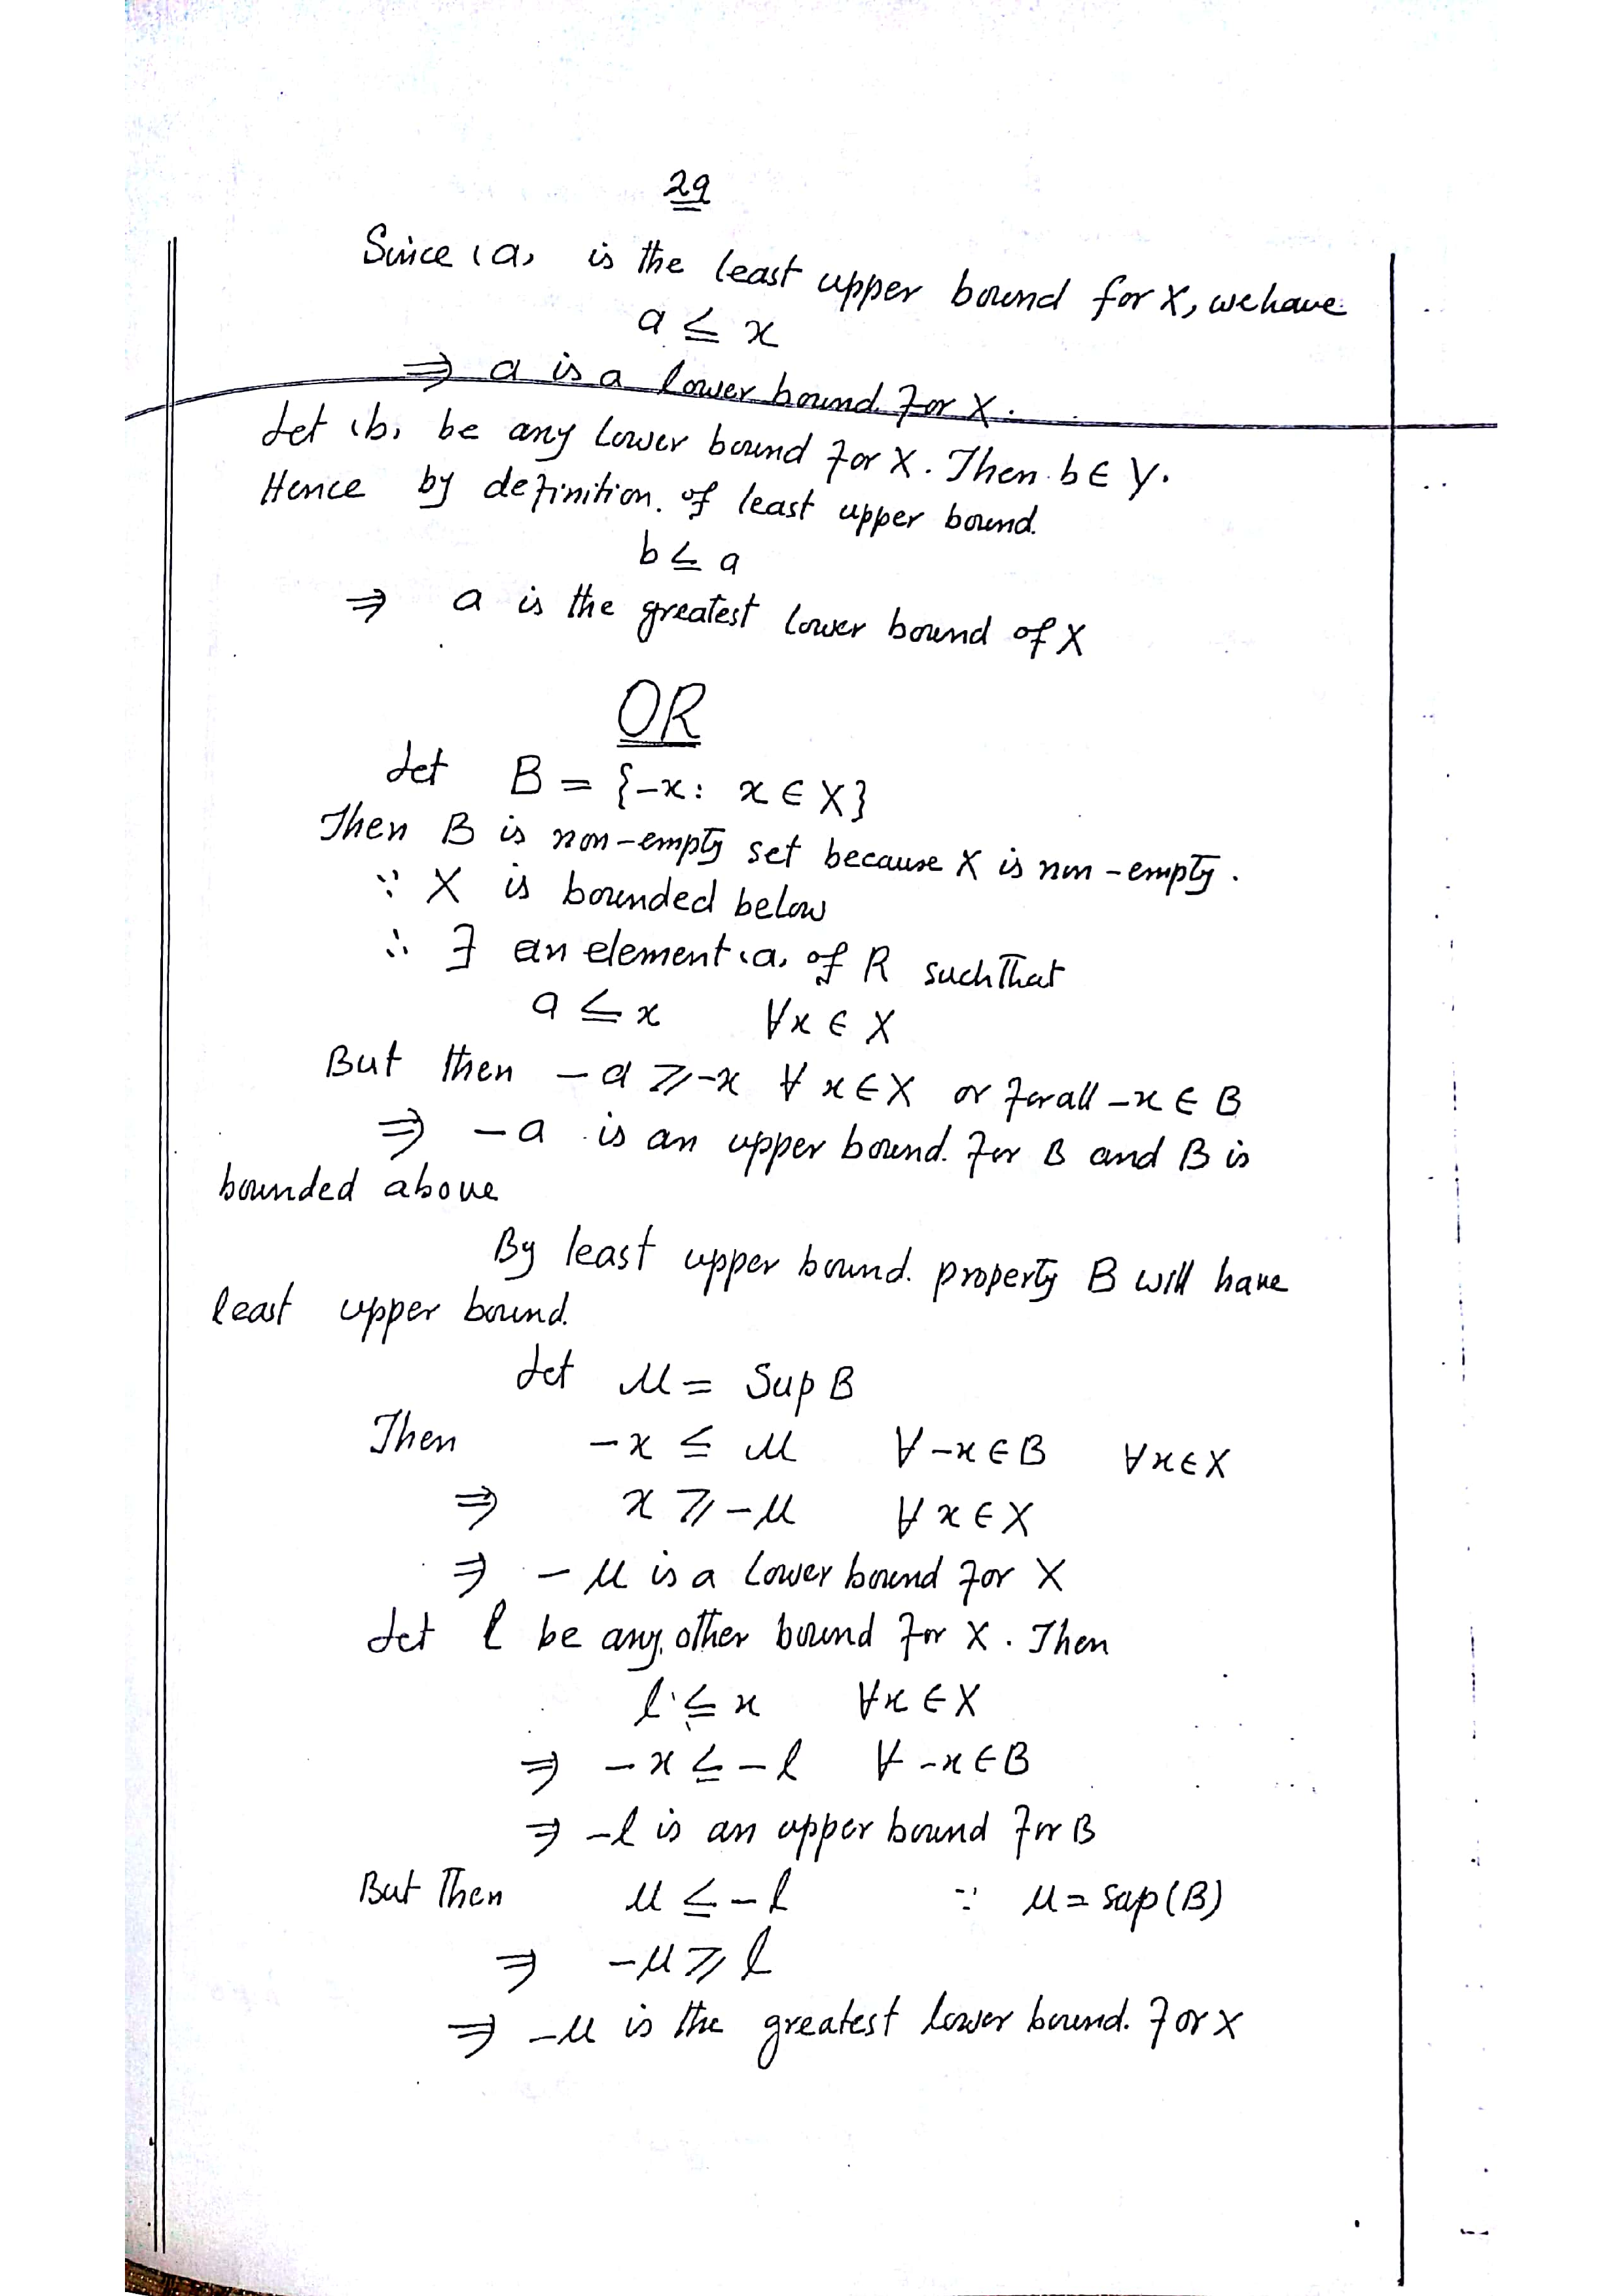 29
Since 'a' is the least upper bound for X, we have
a ≤ x
⇒ a is a lower bound for X.
Let 'b' be any lower bound for X. Then b ∈ Y.
Hence by definition of least upper bound.
b ≤ a
⇒ a is the greatest lower bound of X
OR
Let B = {-x : x ∈ X}
Then B is non-empty set because X is non-empty.
∵ X is bounded below
∴ ∃ an element 'a' of R such that
a ≤ x ∀x ∈ X
But then -a ≥ -x ∀ x ∈ X or for all -x ∈ B
⇒ -a is an upper bound for B and B is
bounded above
By least upper bound property B will have
least upper bound.
Let u = Sup B
Then -x ≤ u ∀ -x ∈ B ∀x ∈ X
⇒ x ≥ -u ∀ x ∈ X
⇒ -u is a lower bound for X
Let l be any other bound for X. Then
l ≤ x ∀x ∈ X
⇒ -x ≤ -l ∀ -x ∈ B
⇒ -l is an upper bound for B
But Then u ≤ -l ∵ u = sup(B)
⇒ -u ≥ l
⇒ -u is the greatest lower bound for X